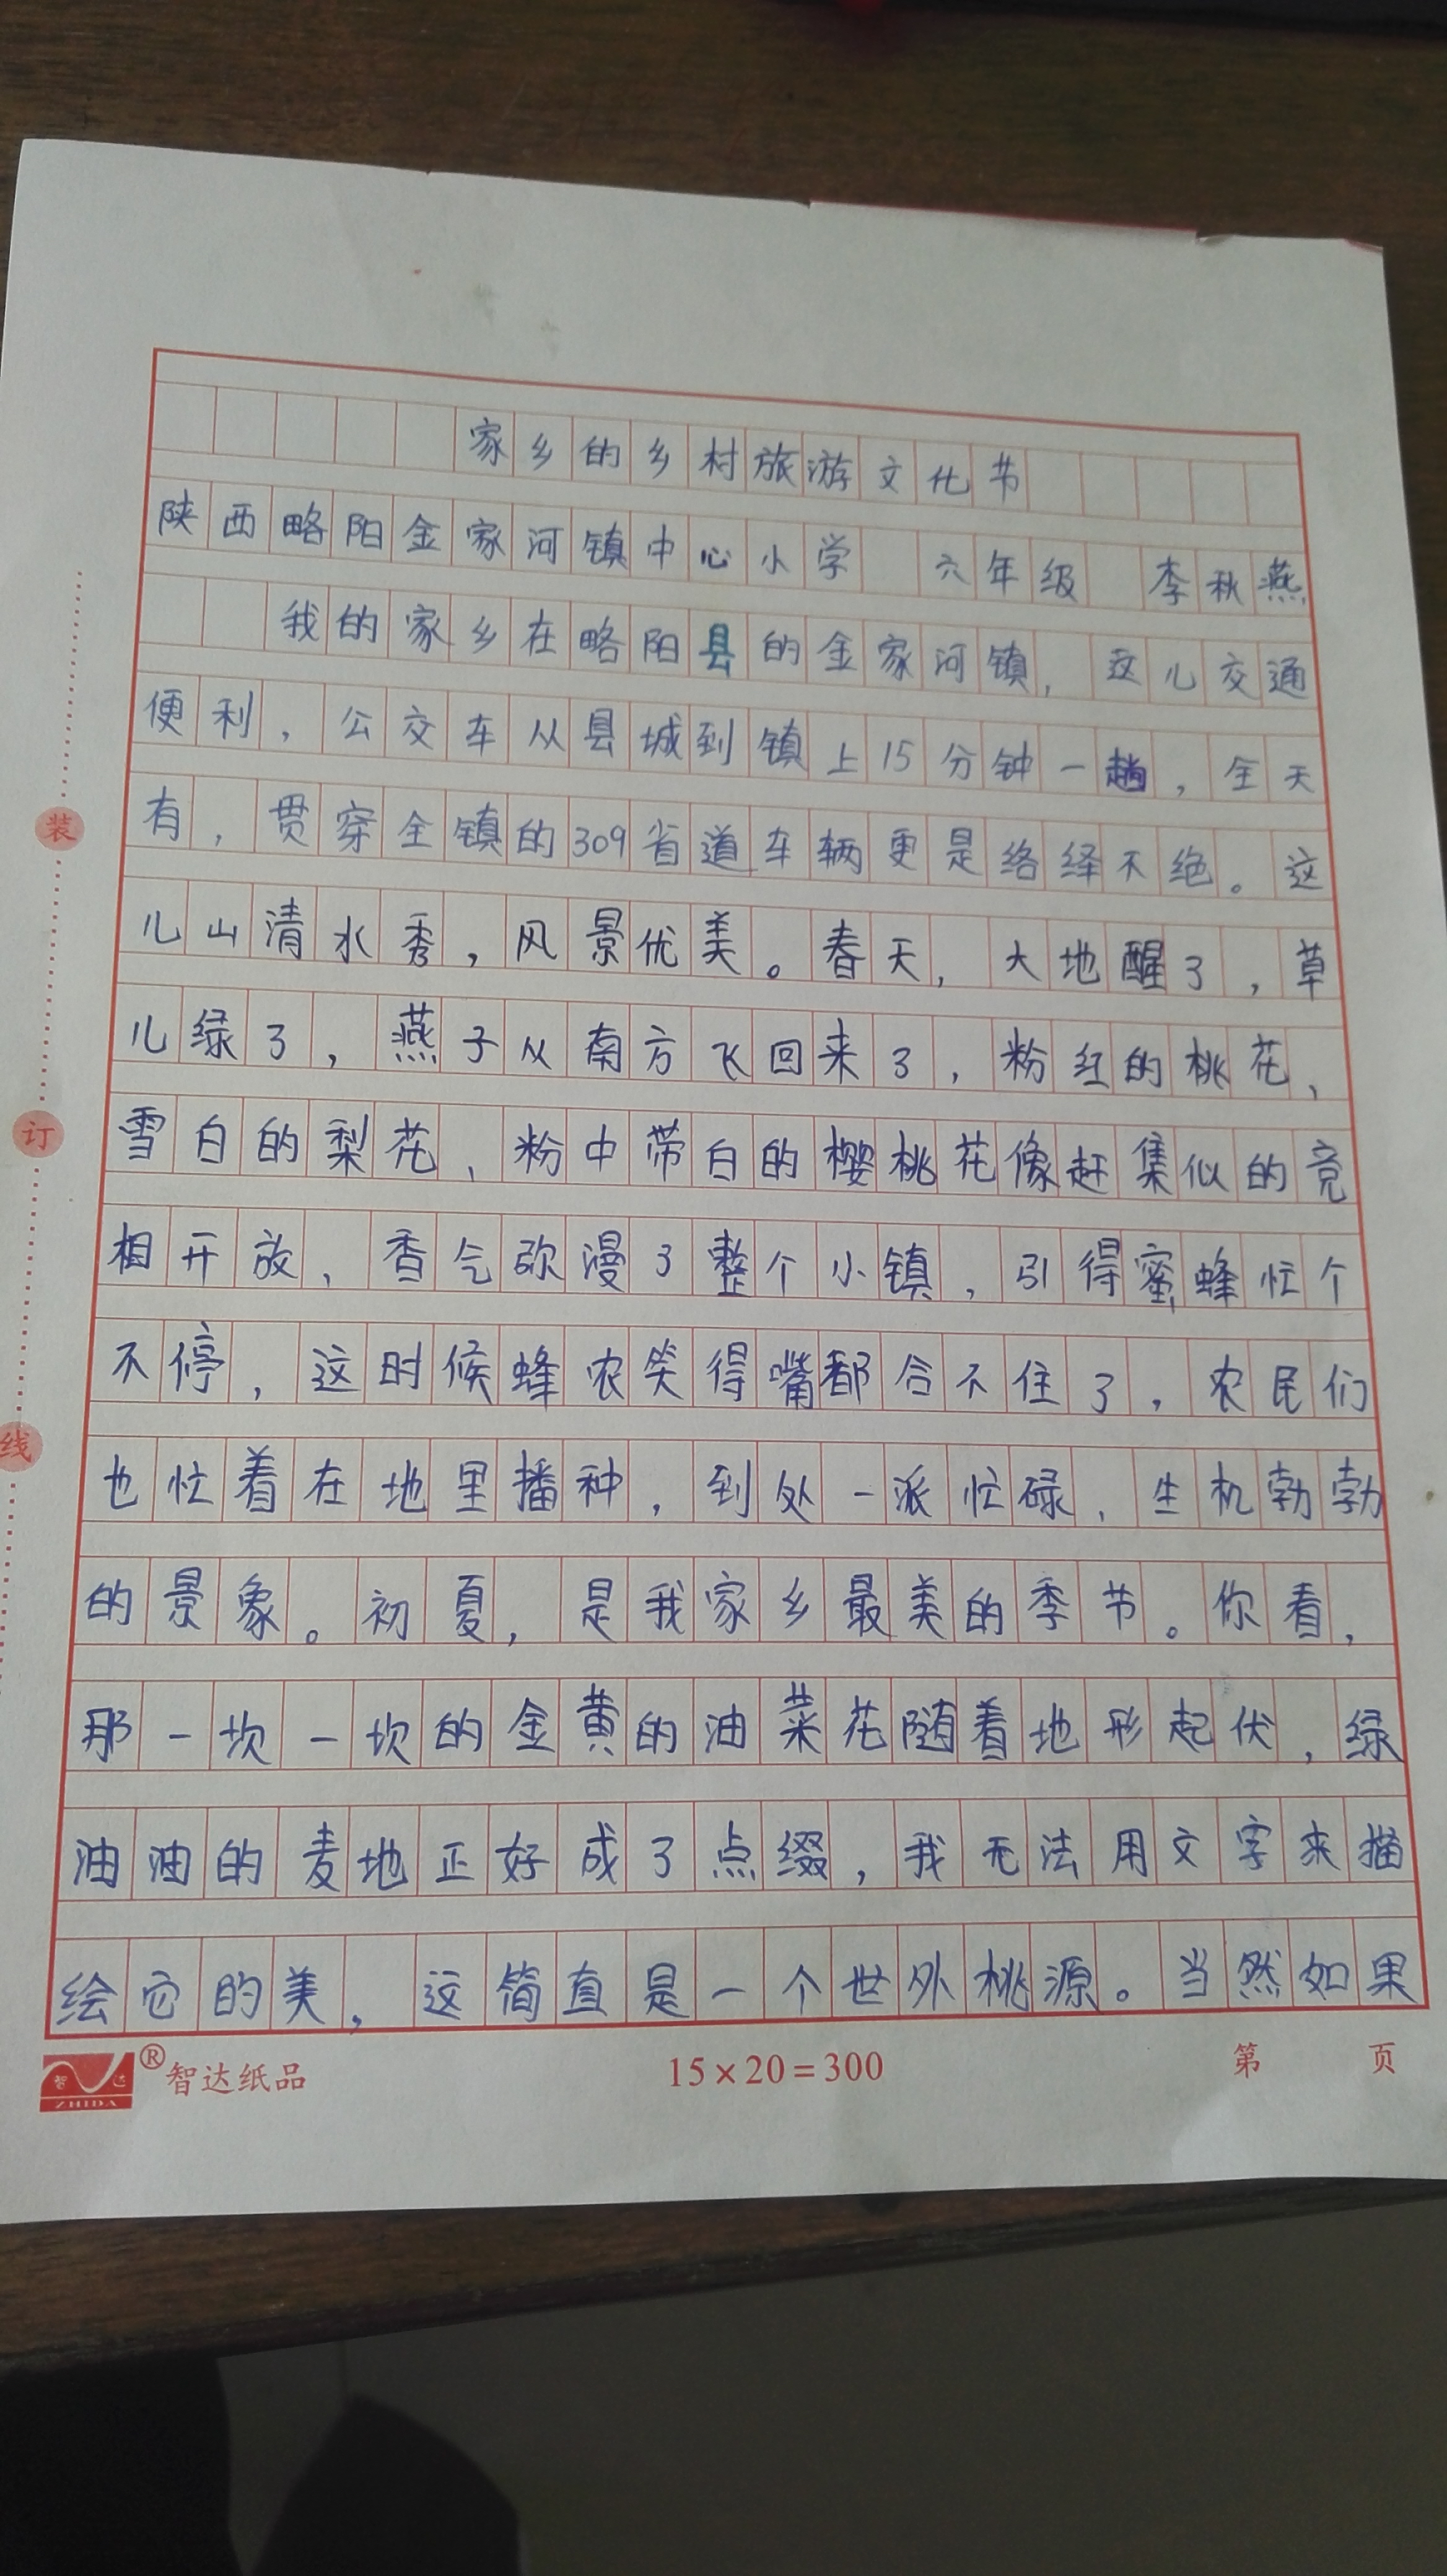 家乡的乡村旅游文化节
陕西略阳金家河镇中心小学 六年级 李秋燕
我的家乡在略阳县的金家河镇，这儿交通
便利，公交车从县城到镇上15分钟一趟，全天
有，贯穿全镇的309省道车辆更是络绎不绝。这
儿山清水秀，风景优美。春天，大地醒了，草
儿绿了，燕子从南方飞回来了，粉红的桃花、
雪白的梨花、粉中带白的樱桃花像赶集似的竞
相开放，香气弥漫了整个小镇，引得蜜蜂忙个
不停，这时候蜂农笑得嘴都合不住了，农民们
也忙着在地里播种，到处一派忙碌、生机勃勃
的景象。初夏，是我家乡最美的季节。你看，
那一坎一坎的金黄的油菜花随着地形起伏，绿
油油的麦地正好成了点缀，我无法用文字来描
绘它的美，这简直是一个世外桃源。当然如果
装
订
线
智达
ZHIDA
®智达纸品
15×20=300
第 页